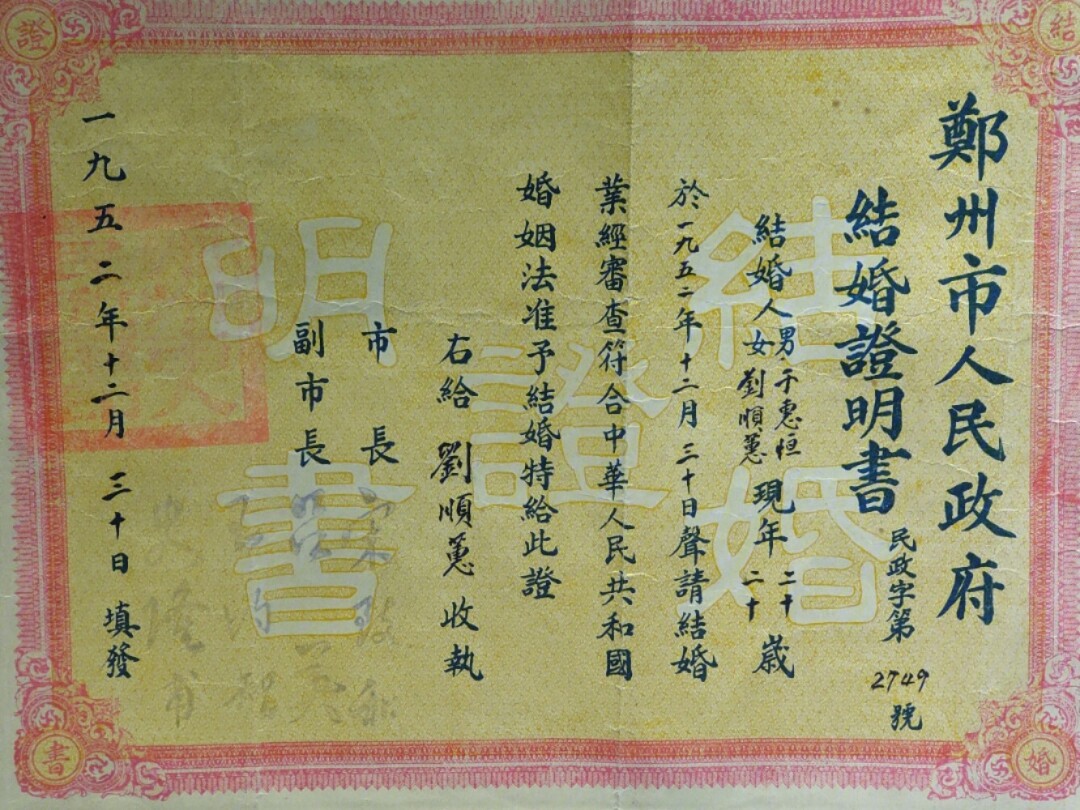 鄭州市人民政府
結婚證明書
民政字第2749號
結婚人
男于惠恒
女劉順蕙
現年
二十
二十
歲
於一九五二年十二月三十日聲請結婚
業經審查符合中華人民共和國
婚姻法准予結婚特給此證
右給劉順蕙收執
市長
副市長
一九五二年十二月三十日填發
結婚
證
明書
結
婚
證
書